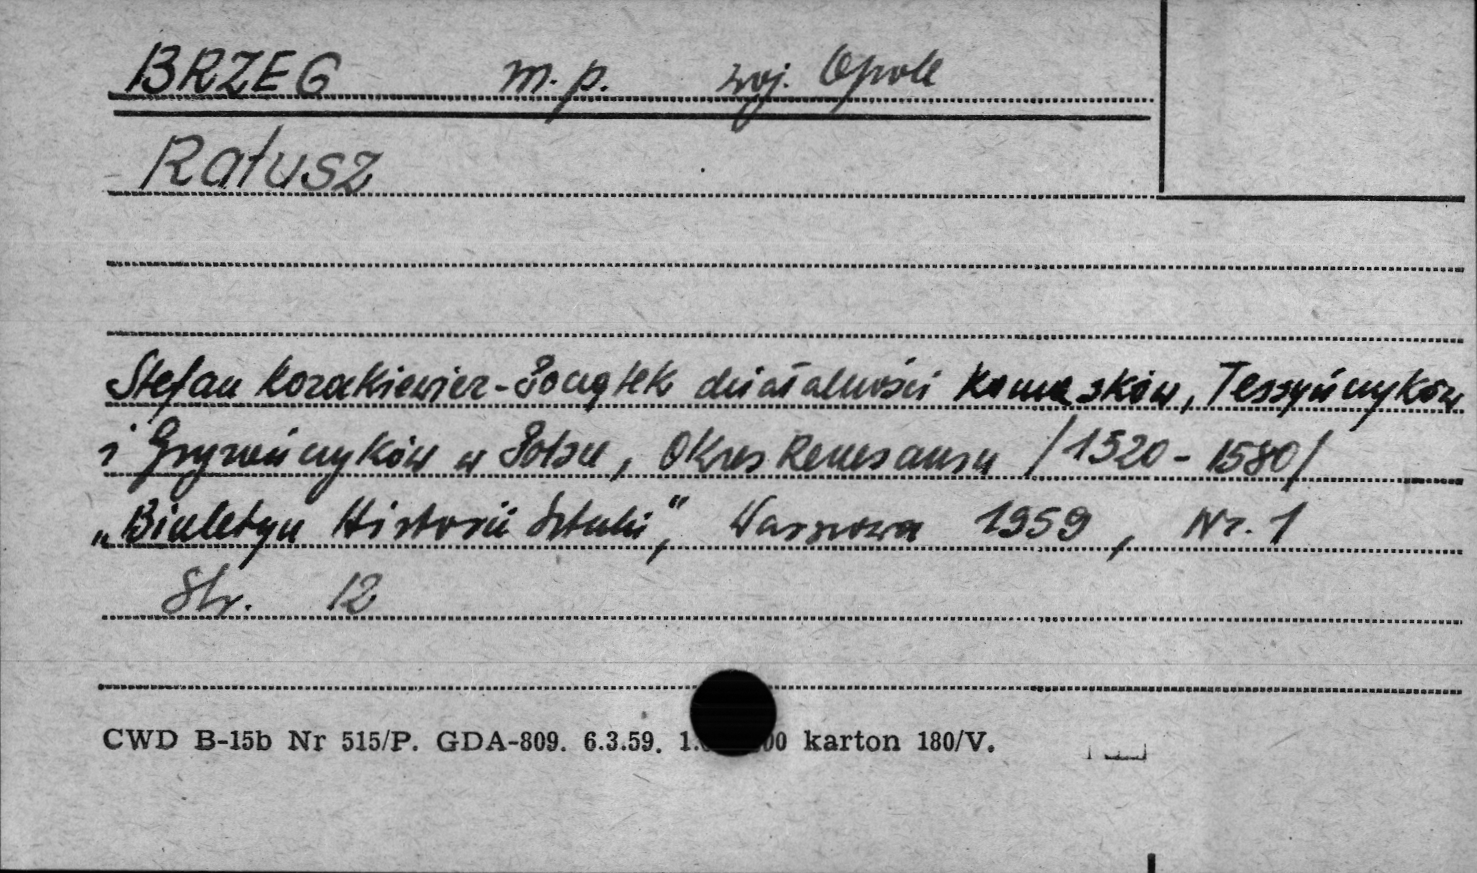 BRZEG m. p. woj. Opole
Ratusz
Stefan Kozakiewicz - Początek działalności Komasków, Tessyńczyków
i Gryzończyków w Polsce, Okres Renesansu /1520 - 1580/
„Biuletyn Historii Sztuki”, Warszawa 1959, Nr. 1
Str. 12
CWD B-15b Nr 515/P. GDA-809. 6.3.59. karton 180/V.